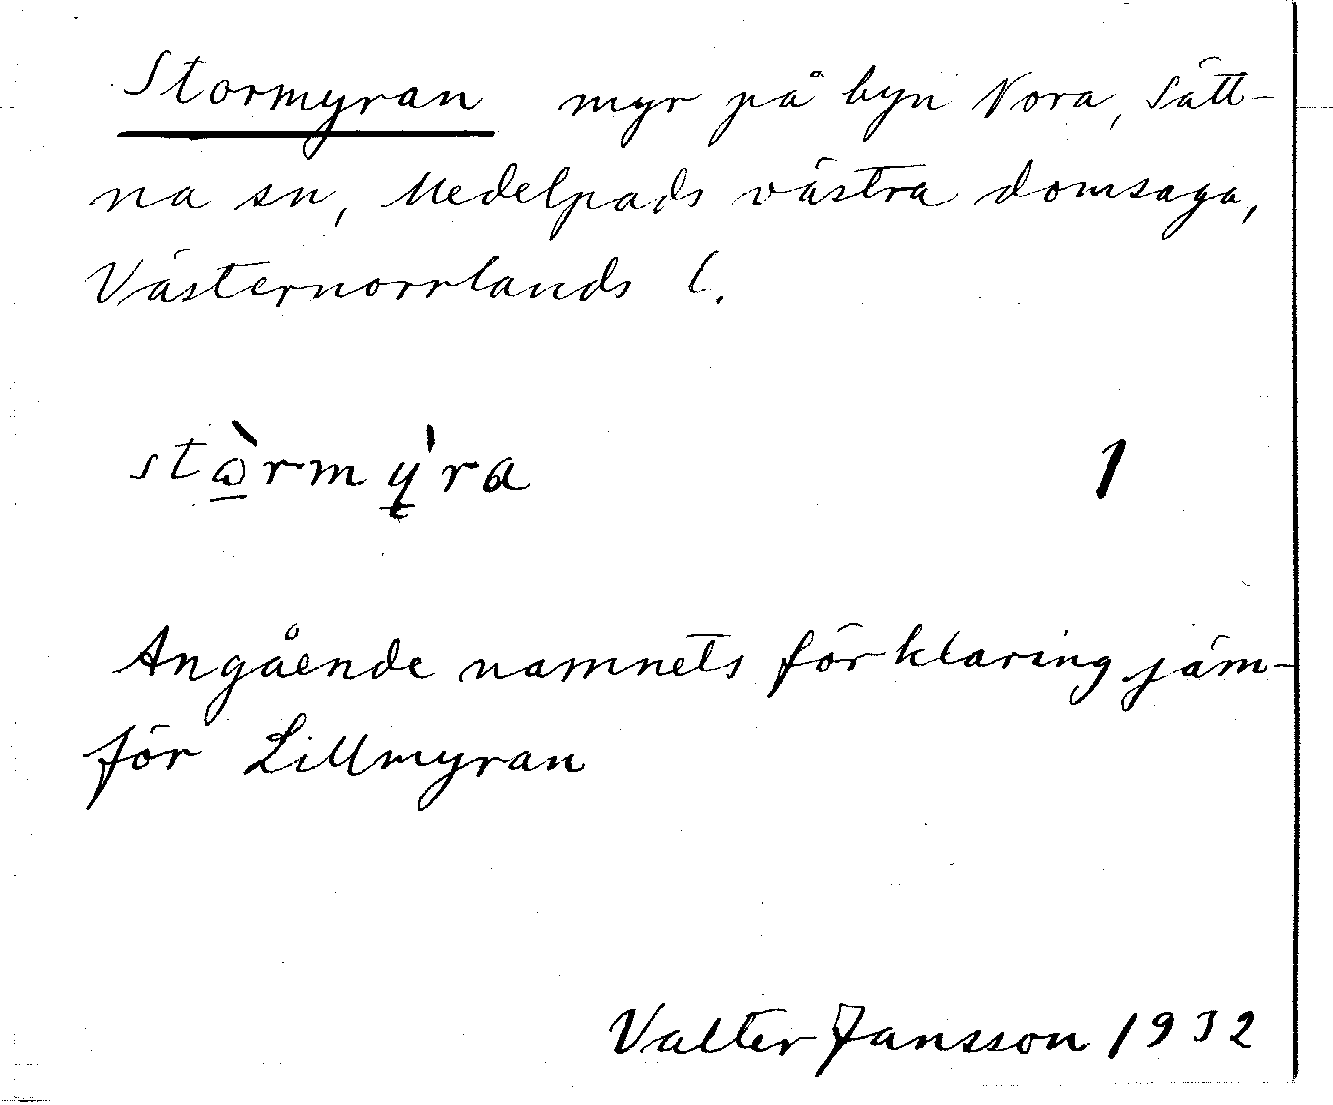 Stormyran myr på byn Nora, Sätt-
na sn, Medelpads västra domsaga,
Västernorrlands l.
stὼ̲rmỳ̲ra 1
Angående namnets förklaring jäm-
för Lillmyran
Valter Jansson 1932